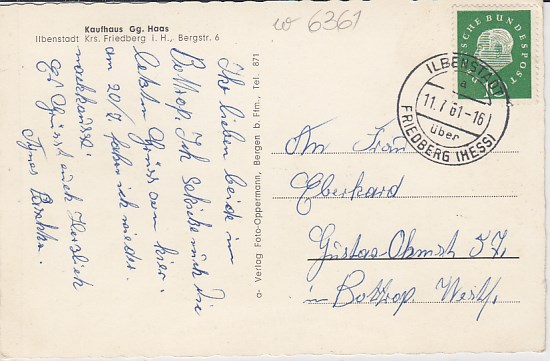 Kaufhaus Gg. Haas
Ilbenstadt Krs. Friedberg i. H., Bergstr. 6
w 6361
DEUTSCHE BUNDESPOST
ILBENSTADT
a
11.7.61-16
über
FRIEDBERG (HESS)
Ihr lieben beide in
Bottrop. Ich schicke euch die
letzten Grüsse von hier.
am 20/7 fahre ich wieder
nachhause.
Es Grüsst euch Herzlich
Agnes
o- Verlag Foto-Oppermann, Bergen b. Ffm., Tel. 871
An Frau
Eberhard
Gustav-Ohm 37
in Bottrop Westf.